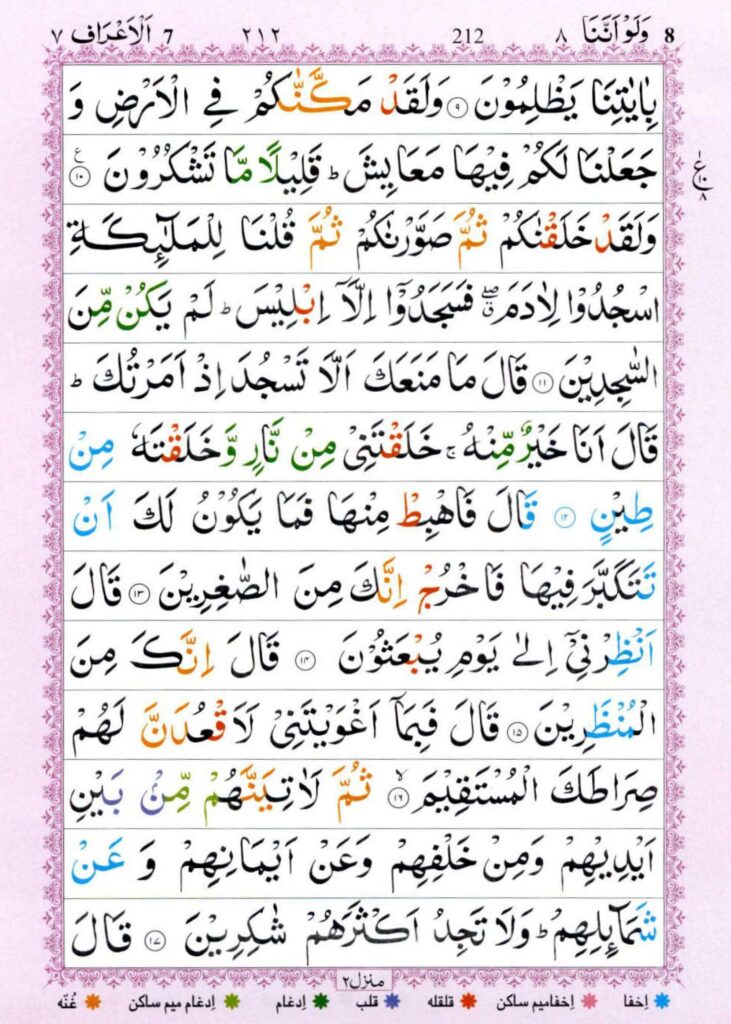 8 وَلَوْ اَنَّنَا ٨ 212 ٢١٢ 7 اَلْاَعْرَاف ٧
بِاٰيٰتِنَا يَظْلِمُوْنَ ۹ وَلَقَدْ مَكَّنّٰكُمْ فِي الْاَرْضِ وَ
جَعَلْنَا لَكُمْ فِيْهَا مَعَايِشَ ؕ قَلِيْلًا مَّا تَشْكُرُوْنَ ۱۰ ع
ع ۱۰ ۸
وَلَقَدْ خَلَقْنٰكُمْ ثُمَّ صَوَّرْنٰكُمْ ثُمَّ قُلْنَا لِلْمَلٰٓئِكَةِ
اسْجُدُوْا لِاٰدَمَ ۖۗ فَسَجَدُوْٓا اِلَّاۤ اِبْلِيْسَ ؕ لَمْ يَكُنْ مِّنَ
السّٰجِدِيْنَ ۱۱ قَالَ مَا مَنَعَكَ اَلَّا تَسْجُدَ اِذْ اَمَرْتُكَ ؕ
قَالَ اَنَا خَيْرٌ مِّنْهُ ۚ خَلَقْتَنِيْ مِنْ نَّارٍ وَّخَلَقْتَهٗ مِنْ
طِيْنٍ ۱۲ قَالَ فَاهْبِطْ مِنْهَا فَمَا يَكُوْنُ لَكَ اَنْ
تَتَكَبَّرَ فِيْهَا فَاخْرُجْ اِنَّكَ مِنَ الصّٰغِرِيْنَ ۱۳ قَالَ
اَنْظِرْنِيْۤ اِلٰى يَوْمِ يُبْعَثُوْنَ ۱۴ قَالَ اِنَّكَ مِنَ
الْمُنْظَرِيْنَ ۱۵ قَالَ فَبِمَاۤ اَغْوَيْتَنِيْ لَاَقْعُدَنَّ لَهُمْ
صِرَاطَكَ الْمُسْتَقِيْمَ ۱۶ ۙ ثُمَّ لَاٰتِيَنَّهُمْ مِّنْۢ بَيْنِ
اَيْدِيْهِمْ وَمِنْ خَلْفِهِمْ وَعَنْ اَيْمَانِهِمْ وَ عَنْ
شَمَآئِلِهِمْ ؕ وَلَا تَجِدُ اَكْثَرَهُمْ شٰكِرِيْنَ ۱۷ قَالَ
منزل ۲
اِخفا اِخفامیم ساکن قلقله قلب اِدغام اِدغام میم ساکن غُنّه